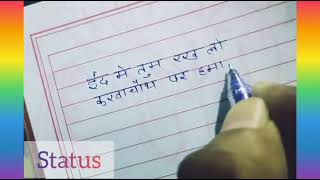 ईद मे तुम रख लो
करवाचौथ पर हमा
Status